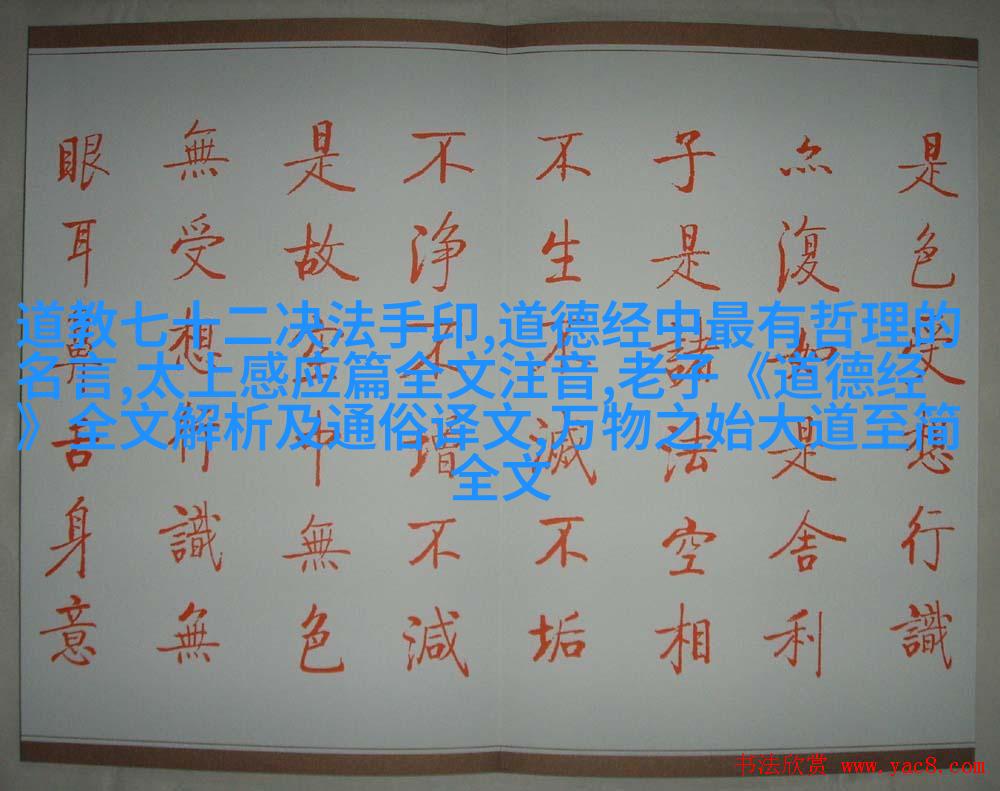 是色受想行識
亦復如是舍利
子是諸法空相
不生不滅不垢
不浄不增不減
是故空中無色
無受想行識無
眼耳鼻舌身意
道教七十二决法手印,道德经中最有哲理的
名言,太上感应篇全文注音,老子《道德经
》全文解析及通俗译文,万物之始大道至简
全文
书法欣赏 www.yac8.com